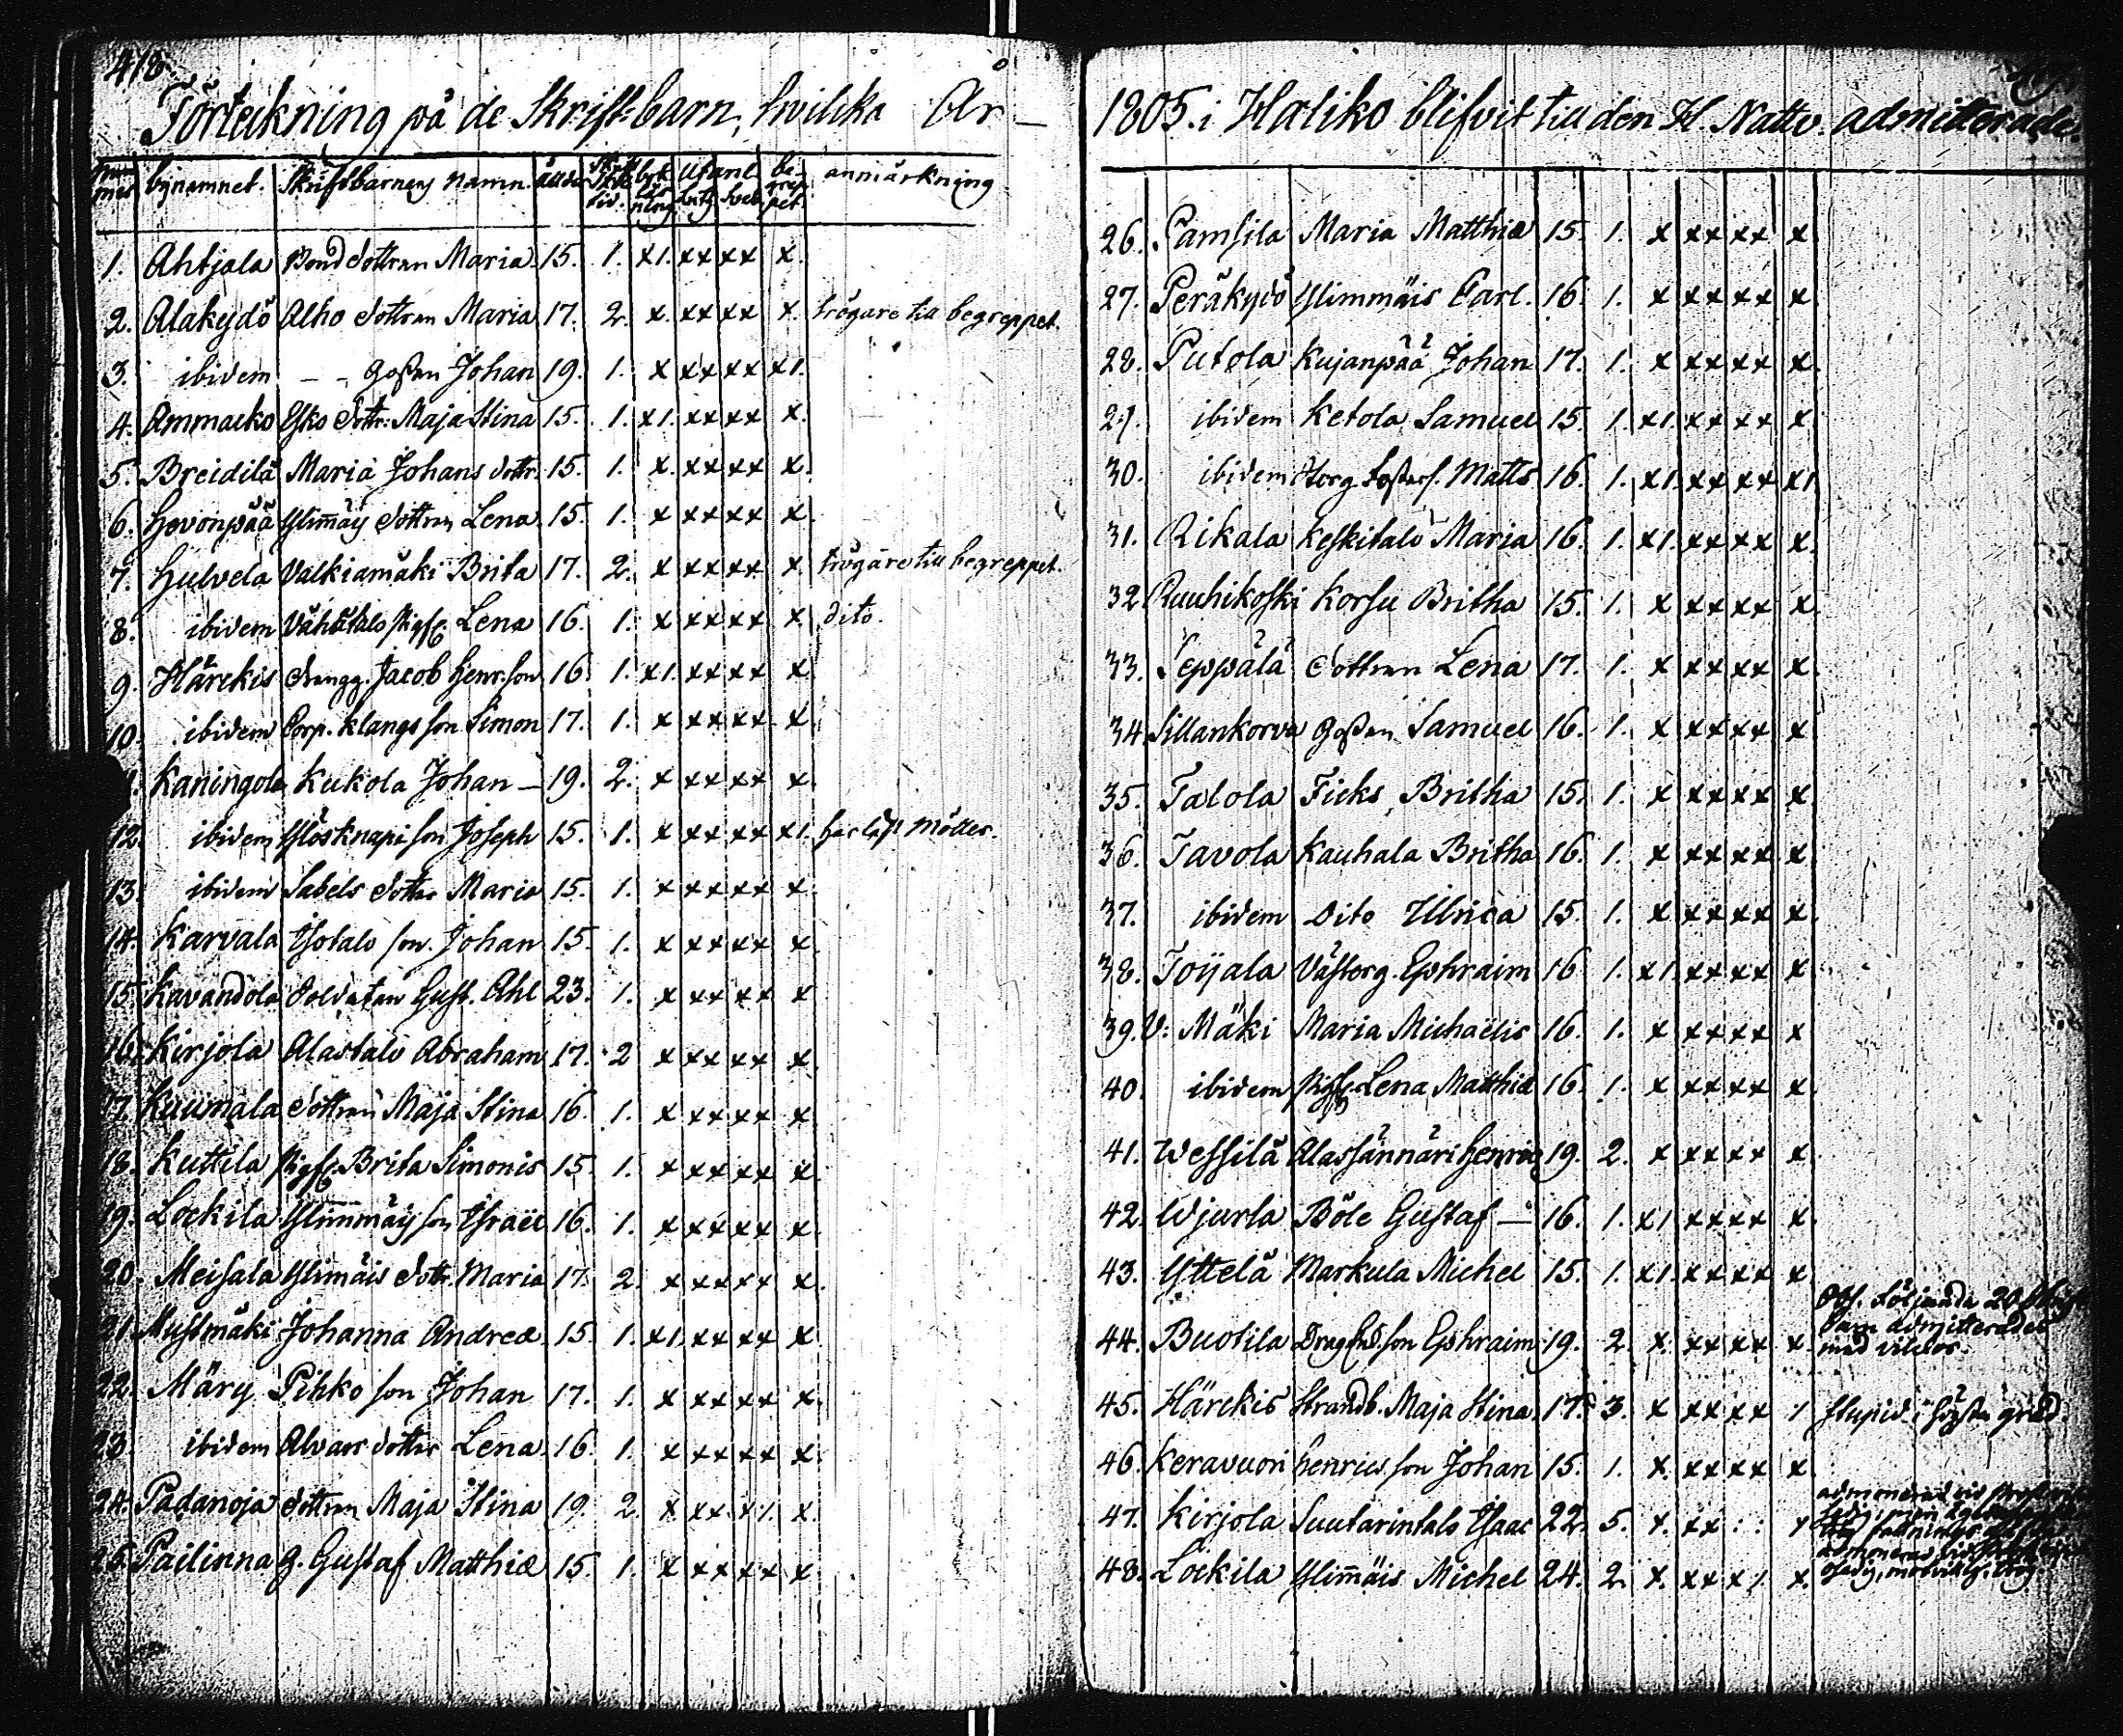 418.
Förtekning på de Skriftbarn, hvilcka År –
bynamnet. Skriftbarnens namn. anmärkning
1. Ahtjala Bond dottren Maria 15. 1. x1. xx xx x.
2. Alakydö Alho dottren Maria 17. 2. x. xx xx x. trögare till begreppet.
3. ibidem – – goßen Johan 19. 1. x xx xx x1.
4. Ammacko Esko dottr: Maja Stina 15. 1. x1. xx xx x.
5. Breidilä Maria Johans dottr. 15. 1. x. xx xx x.
6. Hevonpää Ylimäis dottren Lena 15. 1. x xx xx x.
7. Hulvela Valkiamäki Brita 17. 2. x xx xx x trögare till begreppet.
8. ibidem Vähätalo Lena 16. 1. x xx xx x. dito.
9. Härckis Jacob Henr. son 16. 1. x1. xx xx x
10. ibidem Corp. Klangs son Simon 17. 1. x xx xx x.
Kaningola Kukola Johan – 19. 2. x xx xx x.
12. ibidem son Joseph 15. 1. x xx xx x1.
13. ibidem Sabels dotter Maria 15. 1. x xx xx x.
14. Karvala Isotalo son Johan 15. 1. x xx xx x.
15. Kavandola Soldaten Gust. Ahl 23. 1. x xx xx x
16. Kirjola Alastalo Abraham 17. 2 x xx xx x.
17. Kuumala dottren Maja Stina 16. 1. x xx xx x.
18. Kuttila Brita Simonis 15. 1. x xx xx x.
19. Lockila Ylimmäis son Israël 16. 1. x xx xx x.
20. Meisala Ylimäis dottr. Maria 17. 2. x xx xx x.
21. Mustmäki Johanna Andreæ 15. 1. x1. xx xx x
22. Märy Pihko son Johan 17. 1. x xx xx x.
23. ibidem Alvars dotter Lena 16. 1. x xx xx x.
24. Padanoja dottren Maja Stina 19. 2. x xx x1. x.
25. Pailinna g. Gustaf Matthiæ 15. 1. x xx xx x.
1805. i Haliko blifvit till den H. Nattv. admitterade.
26. Pamsila Maria Matthiæ 15. 1. x xx xx x
27. Peräkydö Ylimmäis Carl. 16. 1. x xx xx x.
28. Putola Kujanpää Johan 17. 1. x xx xx x.
29. ibidem Ketola Samuel 15. 1. x1. xx xx x.
30. ibidem Matts 16. 1. x1. xx xx x1.
31. Rikala Keskitalo Maria 16. 1. x1. xx xx x.
32. Ruuhikoski Korsu Britha 15. 1. x xx xx x.
33. Seppälä dottren Lena 17. 1. x xx xx x.
34. Sillankorva goßen Samuel 16. 1. x xx xx x
35. Talola Ficks Britha 15. 1. x xx xx x.
36. Tavola Kauhala Britha 16. 1. x xx xx x.
37. ibidem Dito Ulrica 15. 1. x xx xx x.
38. Toijala Ephraim 16 1. x1. xx xx x
39. V: Mäki Maria Michaëlis 16. 1. x xx xx x
40. ibidem Lena Matthiæ 16. 1. x xx xx x.
41. Wessilä Alassännäri Henric 19. 2. x xx xx x.
42. Wjurla Böle Gustaf – 16. 1. x1 xx xx x.
43. Yttelä Markula Michel 15. 1. x1. xx xx x
Obs. Följande 20
admitterades
med vilckor.
44. Buotila son Ephraim 19. 2. x. xx xx x.
45. Härckis Strandb. Maja Stina 17. 3. x xx xx 1 stupid i högsta grad.
46. Keravuori Henrics son Johan 15. 1. x. xx xx x
47. Kirjola Suutarintalo Isaac 22. 5. x. xx : : x
48. Lockila Ylimäis Michel 24. 2. x. xx x1. x.